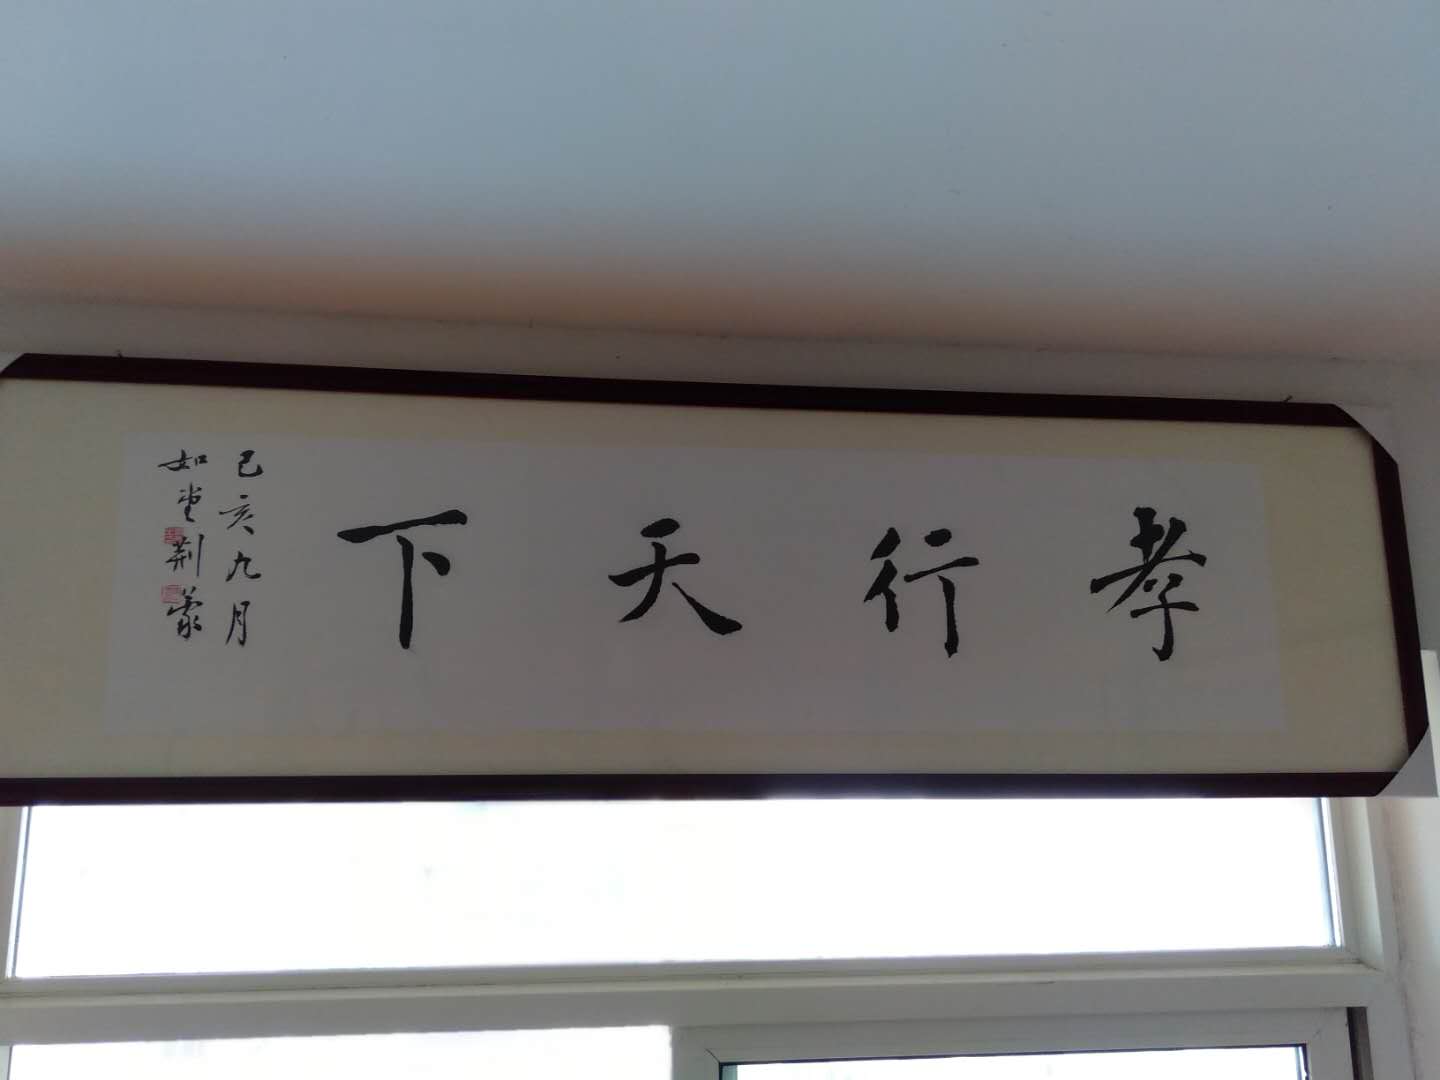 孝行天下
己亥九月
如堂荆蒙